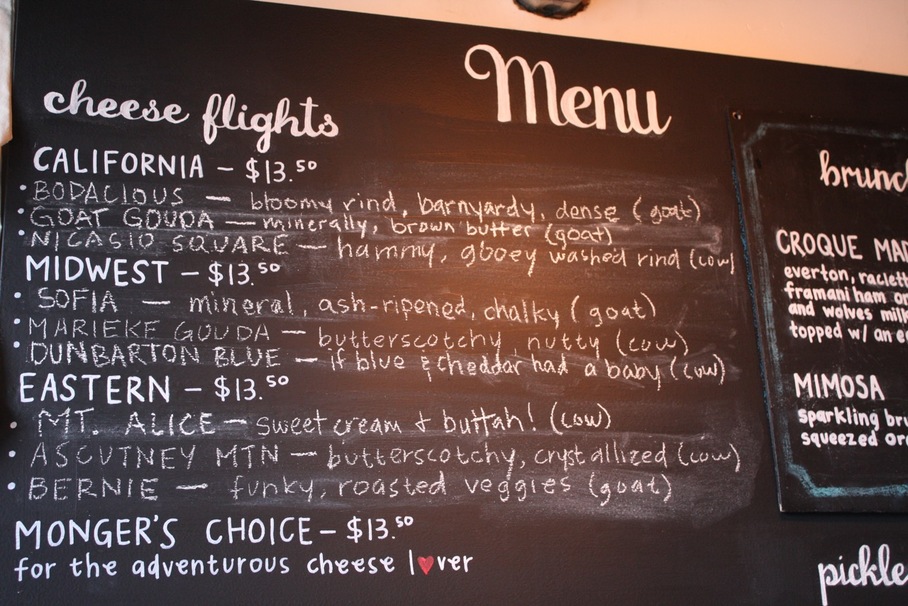 Menu
cheese flights
CALIFORNIA – $13.50
• BODACIOUS — bloomy rind, barnyardy, dense (goat)
• GOAT GOUDA — minerally, brown butter (goat)
• NICASIO SQUARE — hammy, gooey washed rind (cow)
MIDWEST – $13.50
• SOFIA — mineral, ash-ripened, chalky (goat)
• MARIEKE GOUDA — butterscotchy, nutty (cow)
• DUNBARTON BLUE — if blue & cheddar had a baby (cow)
EASTERN – $13.50
• MT. ALICE — sweet cream + buttah! (cow)
• ASCUTNEY MTN — butterscotchy, crystallized (cow)
• BERNIE — funky, roasted veggies (goat)
MONGER'S CHOICE – $13.50
for the adventurous cheese l♥ver
brunc
CROQUE MAD
everton, raclett
framani ham on
and wolves milk
topped w/ an e
MIMOSA
sparkling bru
squeezed ora
pickle